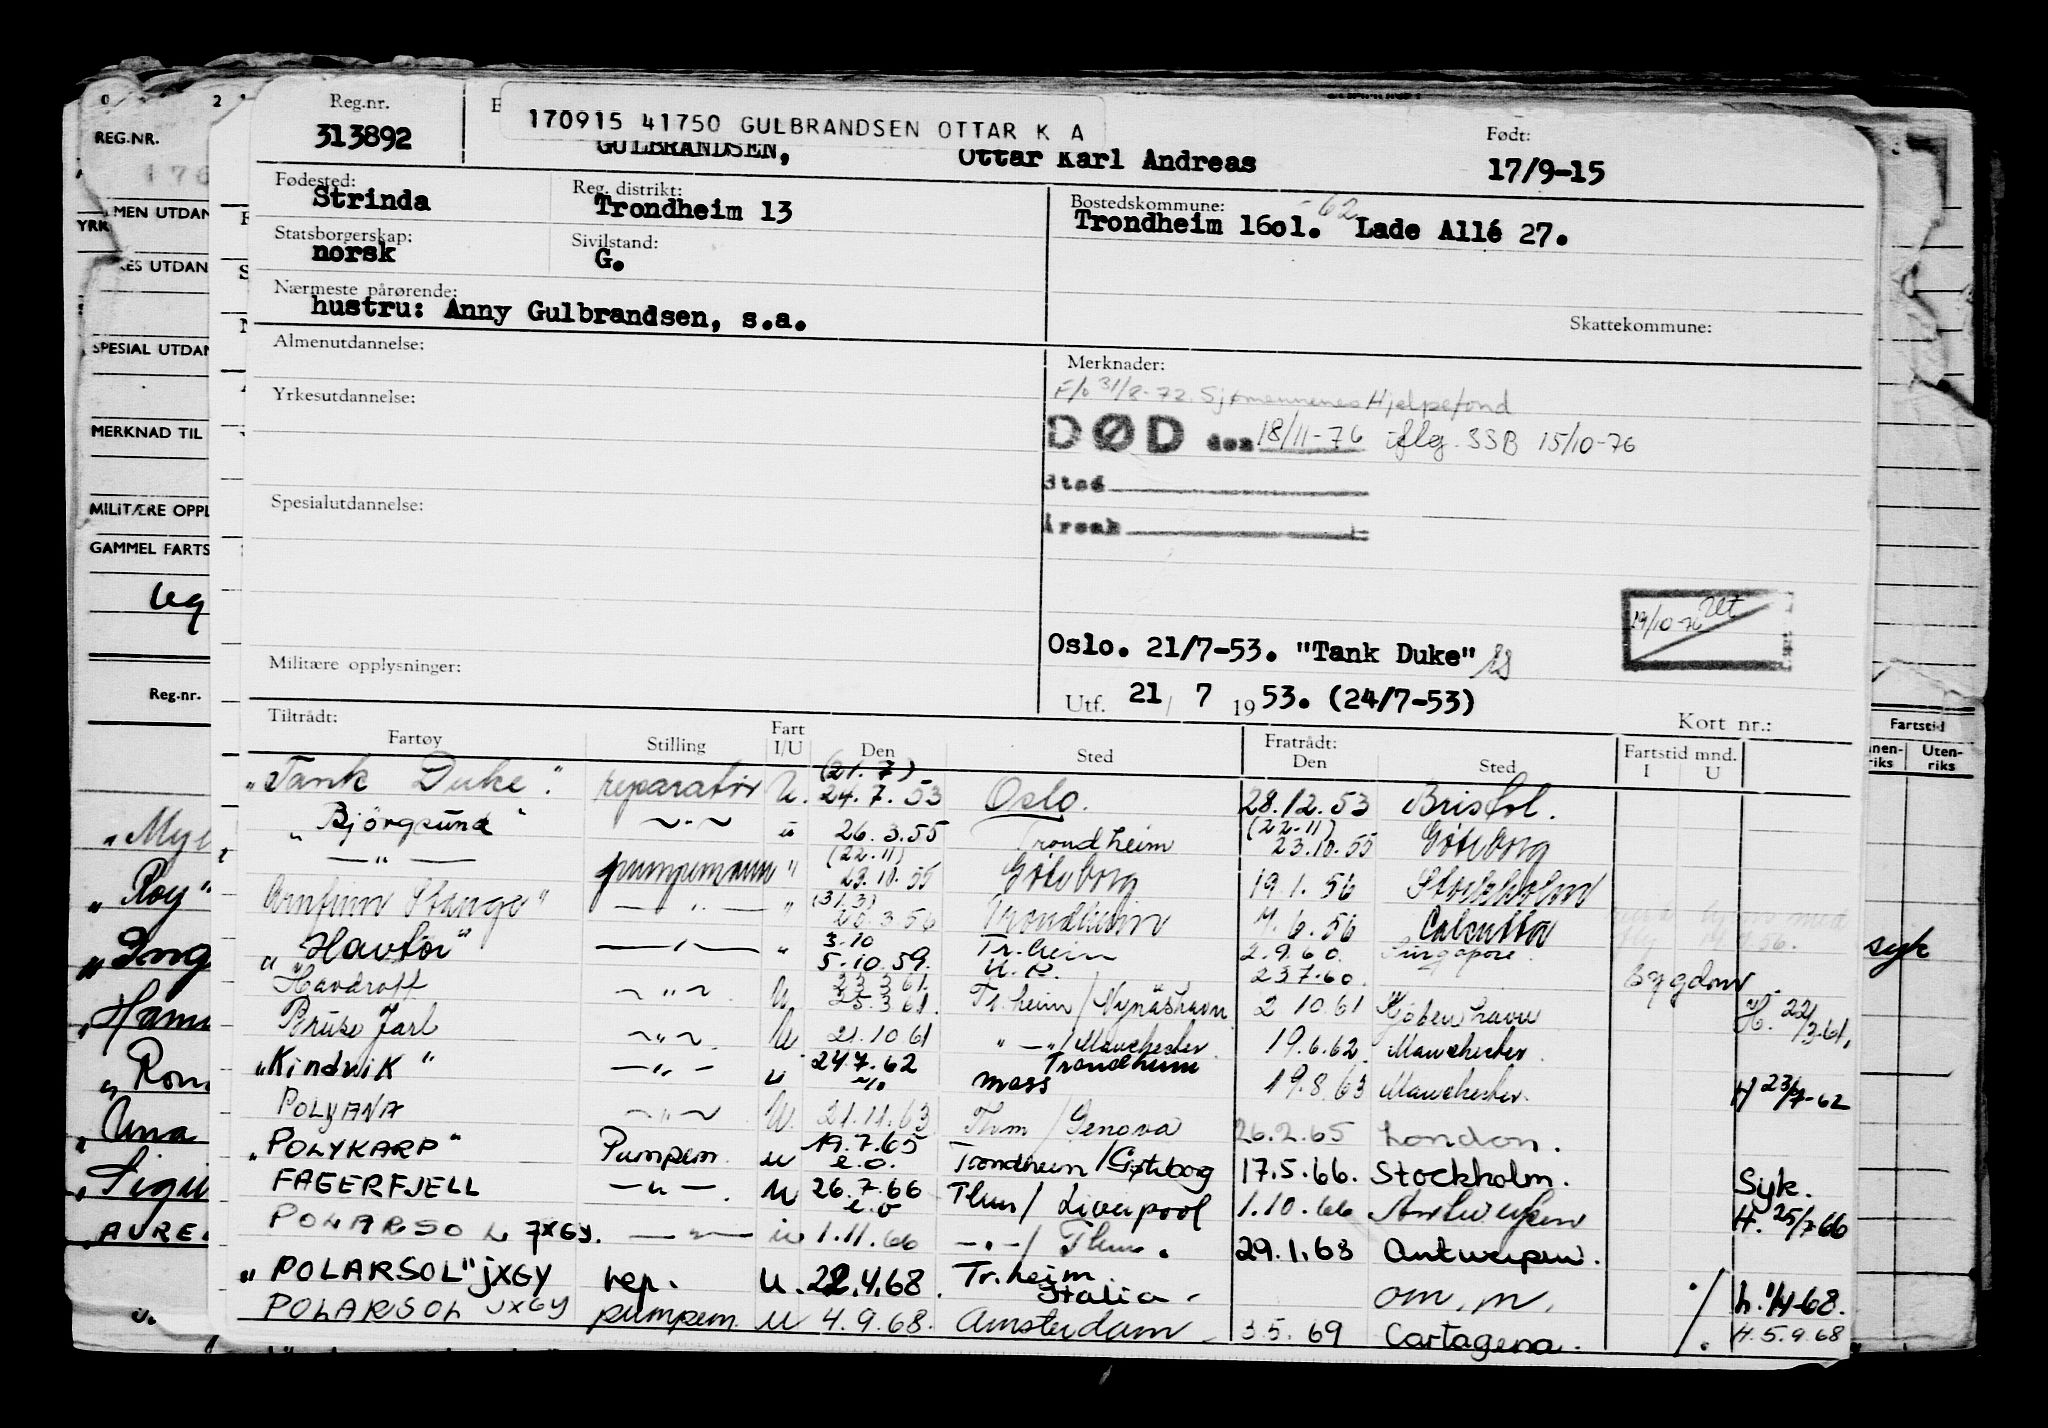 170915 41750 GULBRANDSEN OTTAR K A
Reg.nr. 313892
GULBRANDSEN, Ottar Karl Andreas
Født: 17/9-15
Fødested: Strinda
Reg. distrikt: Trondheim 13
Bostedskommune: -62
Trondheim 1601. Lade Allé 27.
Statsborgerskap: norsk
Sivilstand: G.
Nærmeste pårørende:
hustru: Anny Gulbrandsen, s.a.
Skattekommune:
Almenutdannelse:
Merknader:
F/b 31/8-72. Sjømennenes Hjelpefond
Yrkesutdannelse:
DØD den 18/11-76 iflg. SSB 15/10-76
Sted
Spesialutdannelse:
Årsak
19/10-76
Oslo. 21/7-53. "Tank Duke"
Militære opplysninger:
Utf. 21/ 7 1953. (24/7-53)
Kort nr.:
Tiltrådt: Fratrådt:
Fartøy Stilling Fart I/U Den Sted Den Sted Fartstid mnd. I U
"Tank Duke". reparatør U. (21.7) 24.7.53 Oslo. 28.12.53 Bristol.
"Björgsund" -"- u 26.3.55 Trondheim (22-11) 23.10.55 Göteborg
-"- pumpemann " (22-11) 23.10.55 Göteborg 19.1.56 Stockholm
Arnfinn Stange" -"- " (31.3) 20.3.56 Trondheim 4.6.56 Calcutta
"Havtor" -"- " 3.10 5.10.59. Tr.heim 2.9.60. Singapore.
Havdrott -"- U 23.3.61. 25.3.61 Tr.heim/Nynäshavn 2 10.61 Kjøbenhavn
23.7.60. Bygdøy H. 22/3-61,
Bruse Jarl -"- U 21.10.61 " -"/Manchester 19.6.62. Manchester.
"Kindvik" -"- u 24.7.62 Trondheim moss 19.8.63 Manchester. H 23/7-62
POLYANA -"- U. 21.11.63 Thm/Genova 26.2.65 London.
"POLYKARP" Pumpem. u 19.7.65 e.o. Trondheim/Gøteborg 17.5.66. Stockholm. Syk.
FAGERFJELL -"-. U 26.7.66 e.o Thm/Liverpool 1.10.66 Antwerpen H. 25/7-66
POLARSOL JXGY. -"- u 1.11.66 -"-/Thm. 29.1.68 Antwerpen.
"POLARSOL" JXGY rep. U. 22.4.68. Tr.heim Italia. om.m. h. 1/4-68.
POLARSOL JXGY pumpem. U 4.9.68. Amsterdam 3.5.69 Cartagena. H. 5.9.68
REG.NR.
YRKES UTDAN
SPESIAL UTDAN
MERKNAD TIL
MILITÆRE OPPL
GAMMEL FARTS
Reg.nr.
Fartstid
Innenriks Utenriks
"Roy"
syk